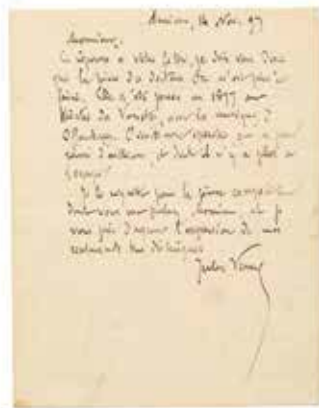 Amiens, 14 Nov. 97
Monsieur,
En réponse à votre lettre, je dois vous dire
que la pièce du docteur Ox n'est plus à
faire. Elle a été jouée en 1877 aux
Variétés avec la musique d'
Offenbach. C'est une opérette qui a peu
réussi d'ailleurs, et dont il n'y a plus à
s'occuper
Je le regrette pour le jeune compositeur
dont vous me parlez, Monsieur, et je
vous prie d'agréer l'expression de mes
sentiments très distingués
Jules Verne